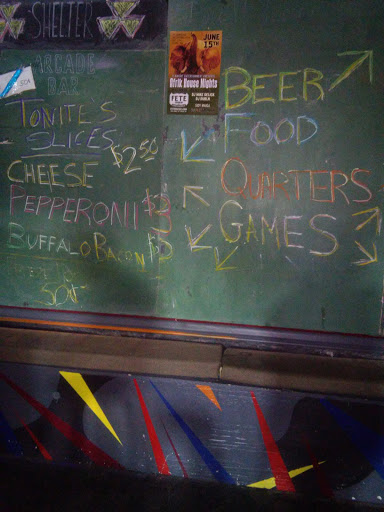 SHELTER
ARCADE
BAR
TONITES
SLICES
CHEESE $2.50
PEPPERONI $3
BUFFALO BACON
50¢
JUNE
15TH
Afrik House Nights
FETE
BEER
FOOD
QUARTERS
GAMES